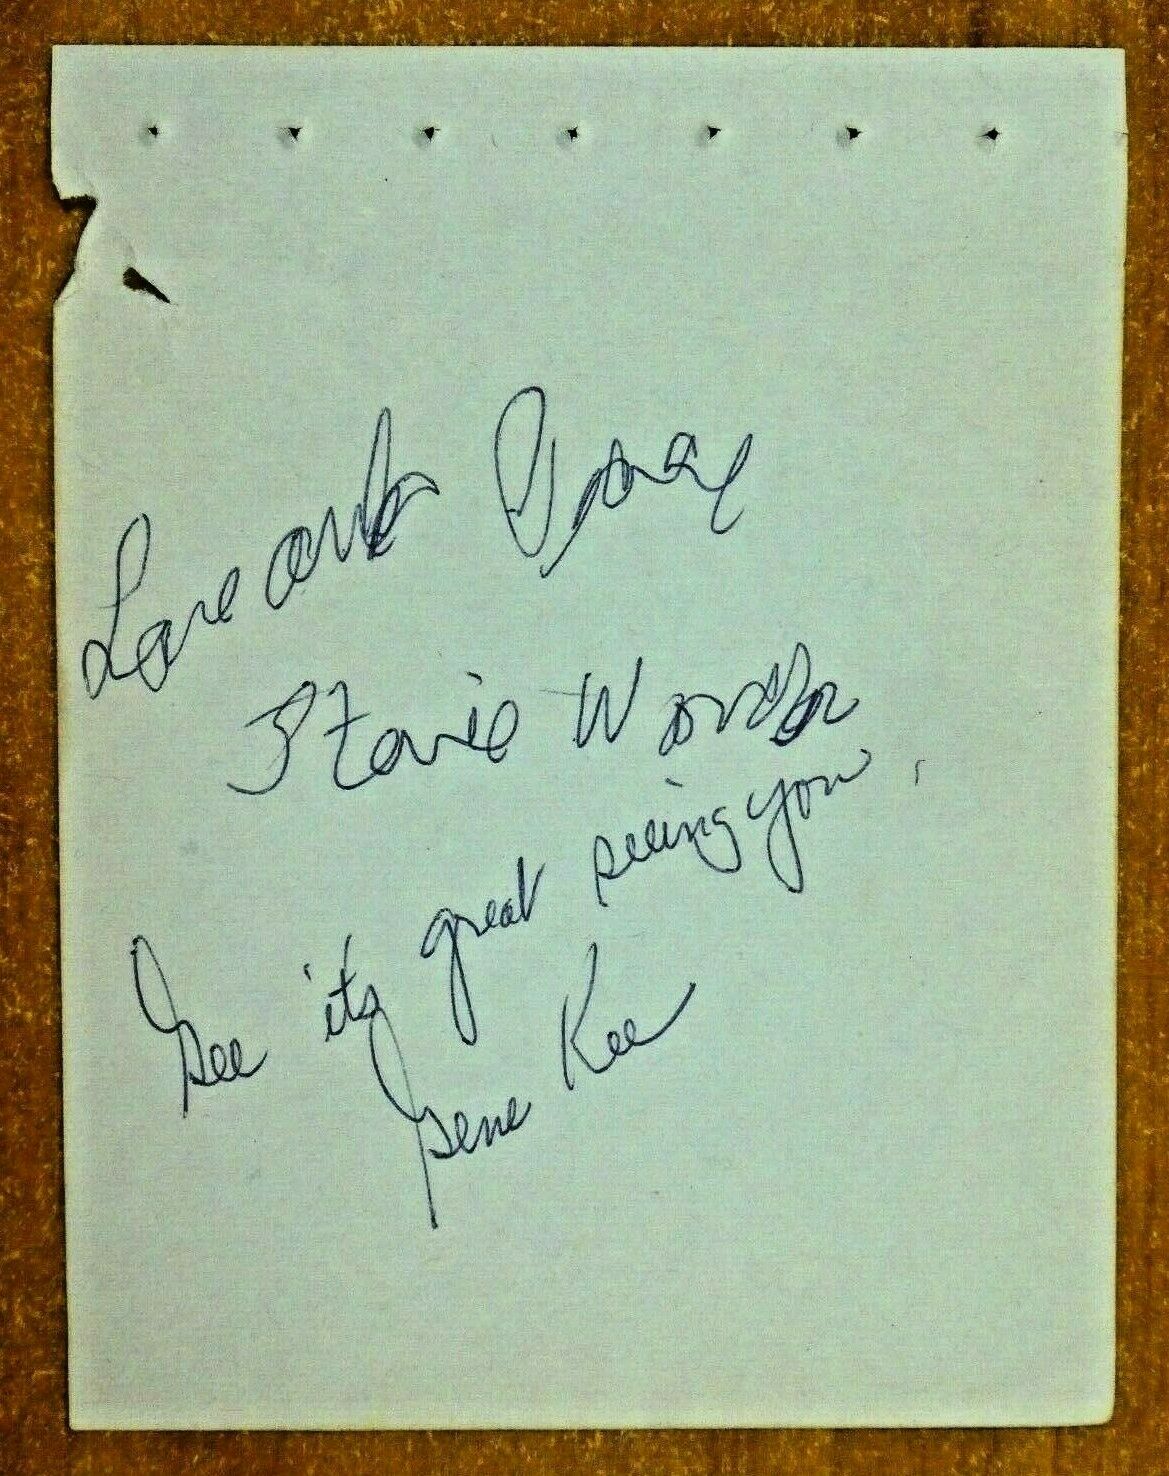 Love and
Stevie Wonder
Gee it's great seeing you,
Gene Kee